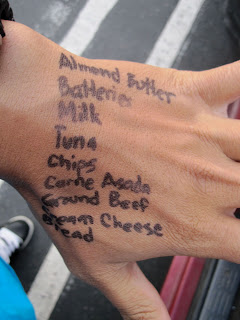 Almond Butter
Batteries
Milk
Tuna
Chips
Carne Asada
Ground Beef
Cream Cheese